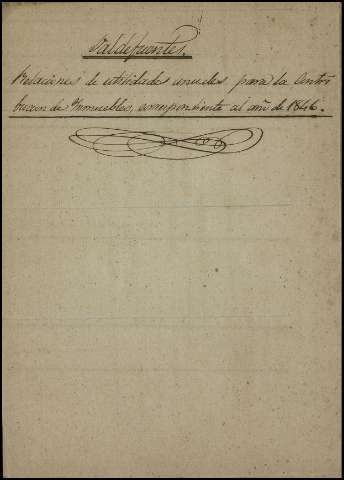 Valdefuentes.
Relaciones de utilidades anuales para la Contri
bucion de Ynmuebles, correspondiente al año de 1846.